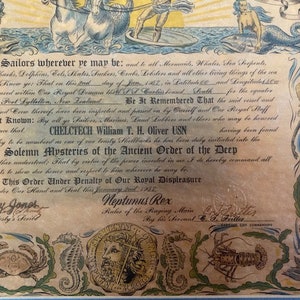 Sailors wherever ye may be: and to all Mermaids, Whales, Sea Serpents,
Sharks, Dolphins, Eels, Skates, Suckers, Crabs, Lobsters and all other living things of the sea
Know ye: That on this 2nd day of Jan. 1955 in Latitude 00
within Our Royal Domain the bound South for the equator
Port Lyttelton, New Zealand. Be It Remembered That the said vessel and
have been by Ourself and Our Royal Staff
Known: By all ye Sailors, Marines, Land Lubbers and others who may be honored
CHELCTECH William T. H. Oliver USN having been found
to be numbered as one of our trusty Shellbacks has been duly initiated into the
Solemn Mysteries of the Ancient Order of the Deep
That by virtue of the power invested in me I do hereby command all
to show due honor and respect to him wherever he may be
This Order Under Penalty of Our Royal Displeasure
Under Our Hand and Seal this January 2nd 1955
Jones Neptunus Rex
Majesty's Scribe Ruler of the Raging Main
By his Servant